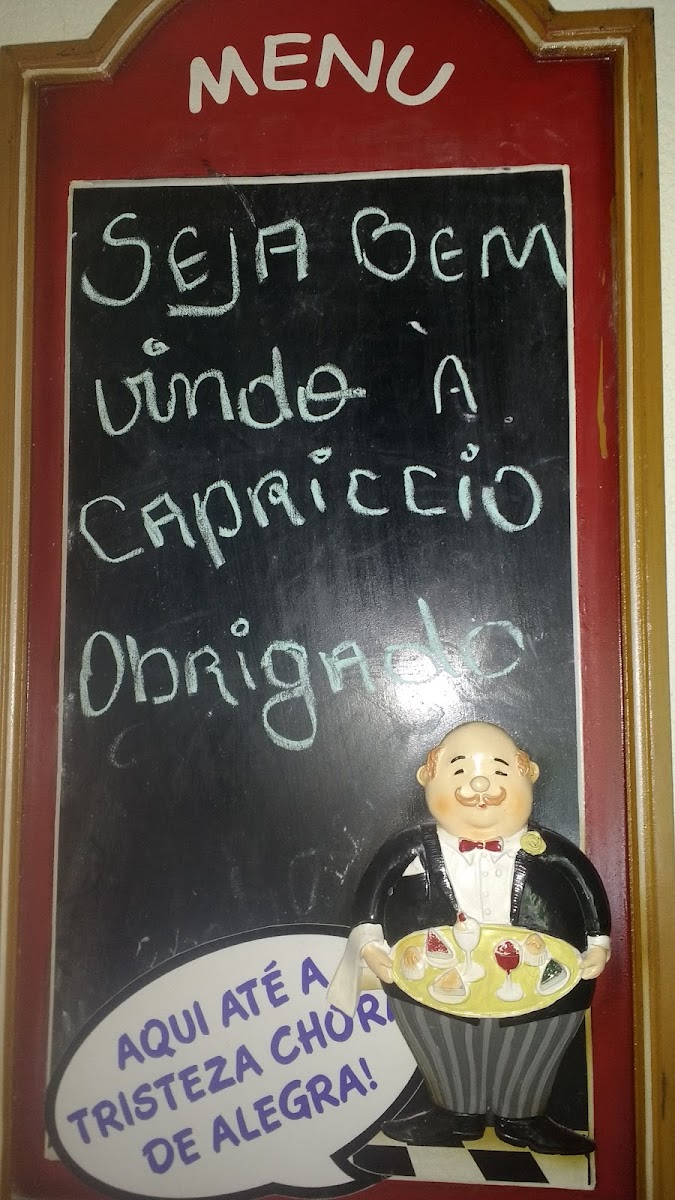 MENU
SEJA BEM
vindo À
CAPRICCIO
OBRIGADO
AQUI ATÉ A
TRISTEZA CHORA
DE ALEGRA!